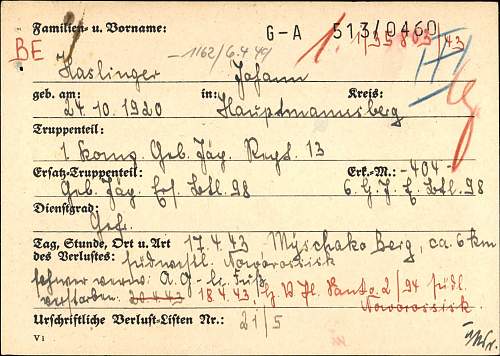 Familien- u. Vorname: G-A 513/0460
BE 1162/6.4.44 1. 1/35803/43
Haslinger Johann
geb. am: in: Kreis:
24.10.1920 Hauptmannsberg
Truppenteil:
1 Komp Geb. Jäg. Regt. 13
Ersatz-Truppenteil: Erk.-M.: -404-
Geb. Jäg. Ers. Btl. 98 6. G. J. E. Btl. 98
Dienstgrad:
Gefr.
Tag, Stunde, Ort u. Art 17.4.43 Myschako Berg, ca. 6 km
des Verlustes: südwestl. Noworossisk
schwer verw. A.G. li. Fuß
verstorben 20.4.43 18.4.43, 2/94 südl.
Noworossisk
Urschriftliche Verlust-Listen Nr.: 21/5
V1